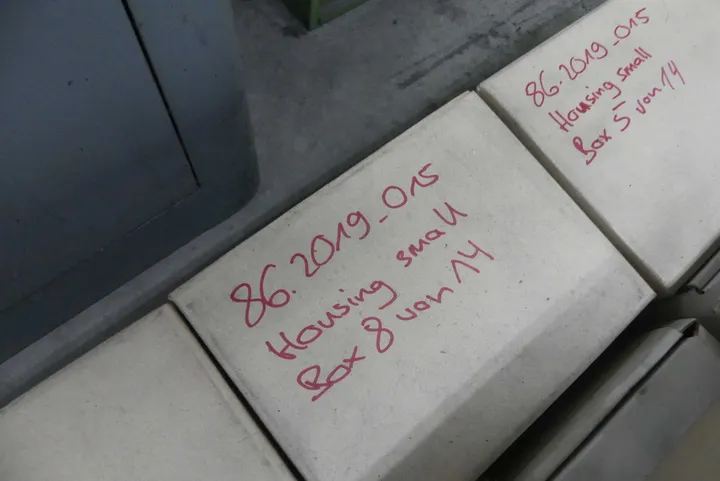 86.2019_015
Housing small
Box 8 von 14
86.2019_015
Housing small
Box 5 von 14